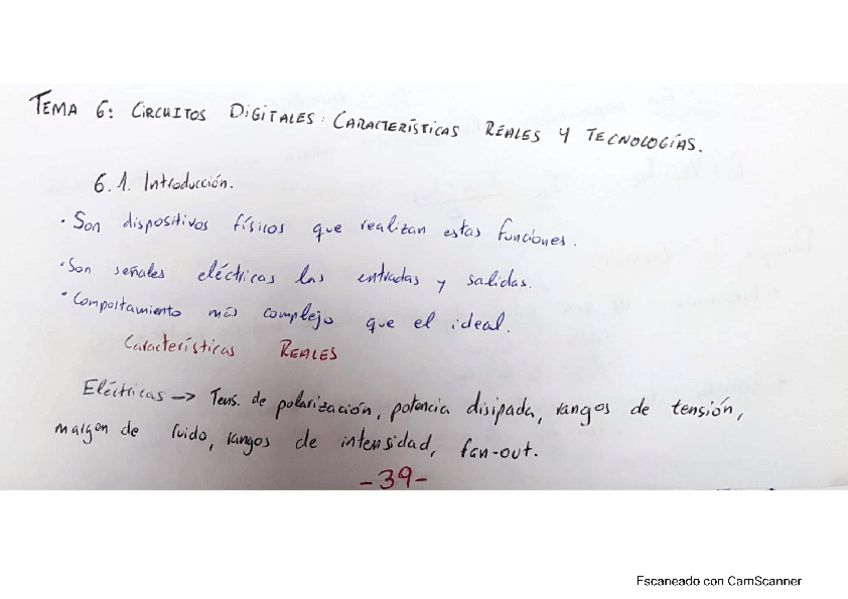 TEMA 6: CIRCUITOS DIGITALES: CARACTERÍSTICAS REALES Y TECNOLOGÍAS.
6.1. Introducción.
· Son dispositivos físicos que realizan estas funciones.
· Son señales eléctricas las entradas y salidas.
· Comportamiento más complejo que el ideal.
Características REALES
Eléctricas -> Tens. de polarización, potencia disipada, rangos de tensión,
margen de ruido, rangos de intensidad, fan-out.
-39-
Escaneado con CamScanner